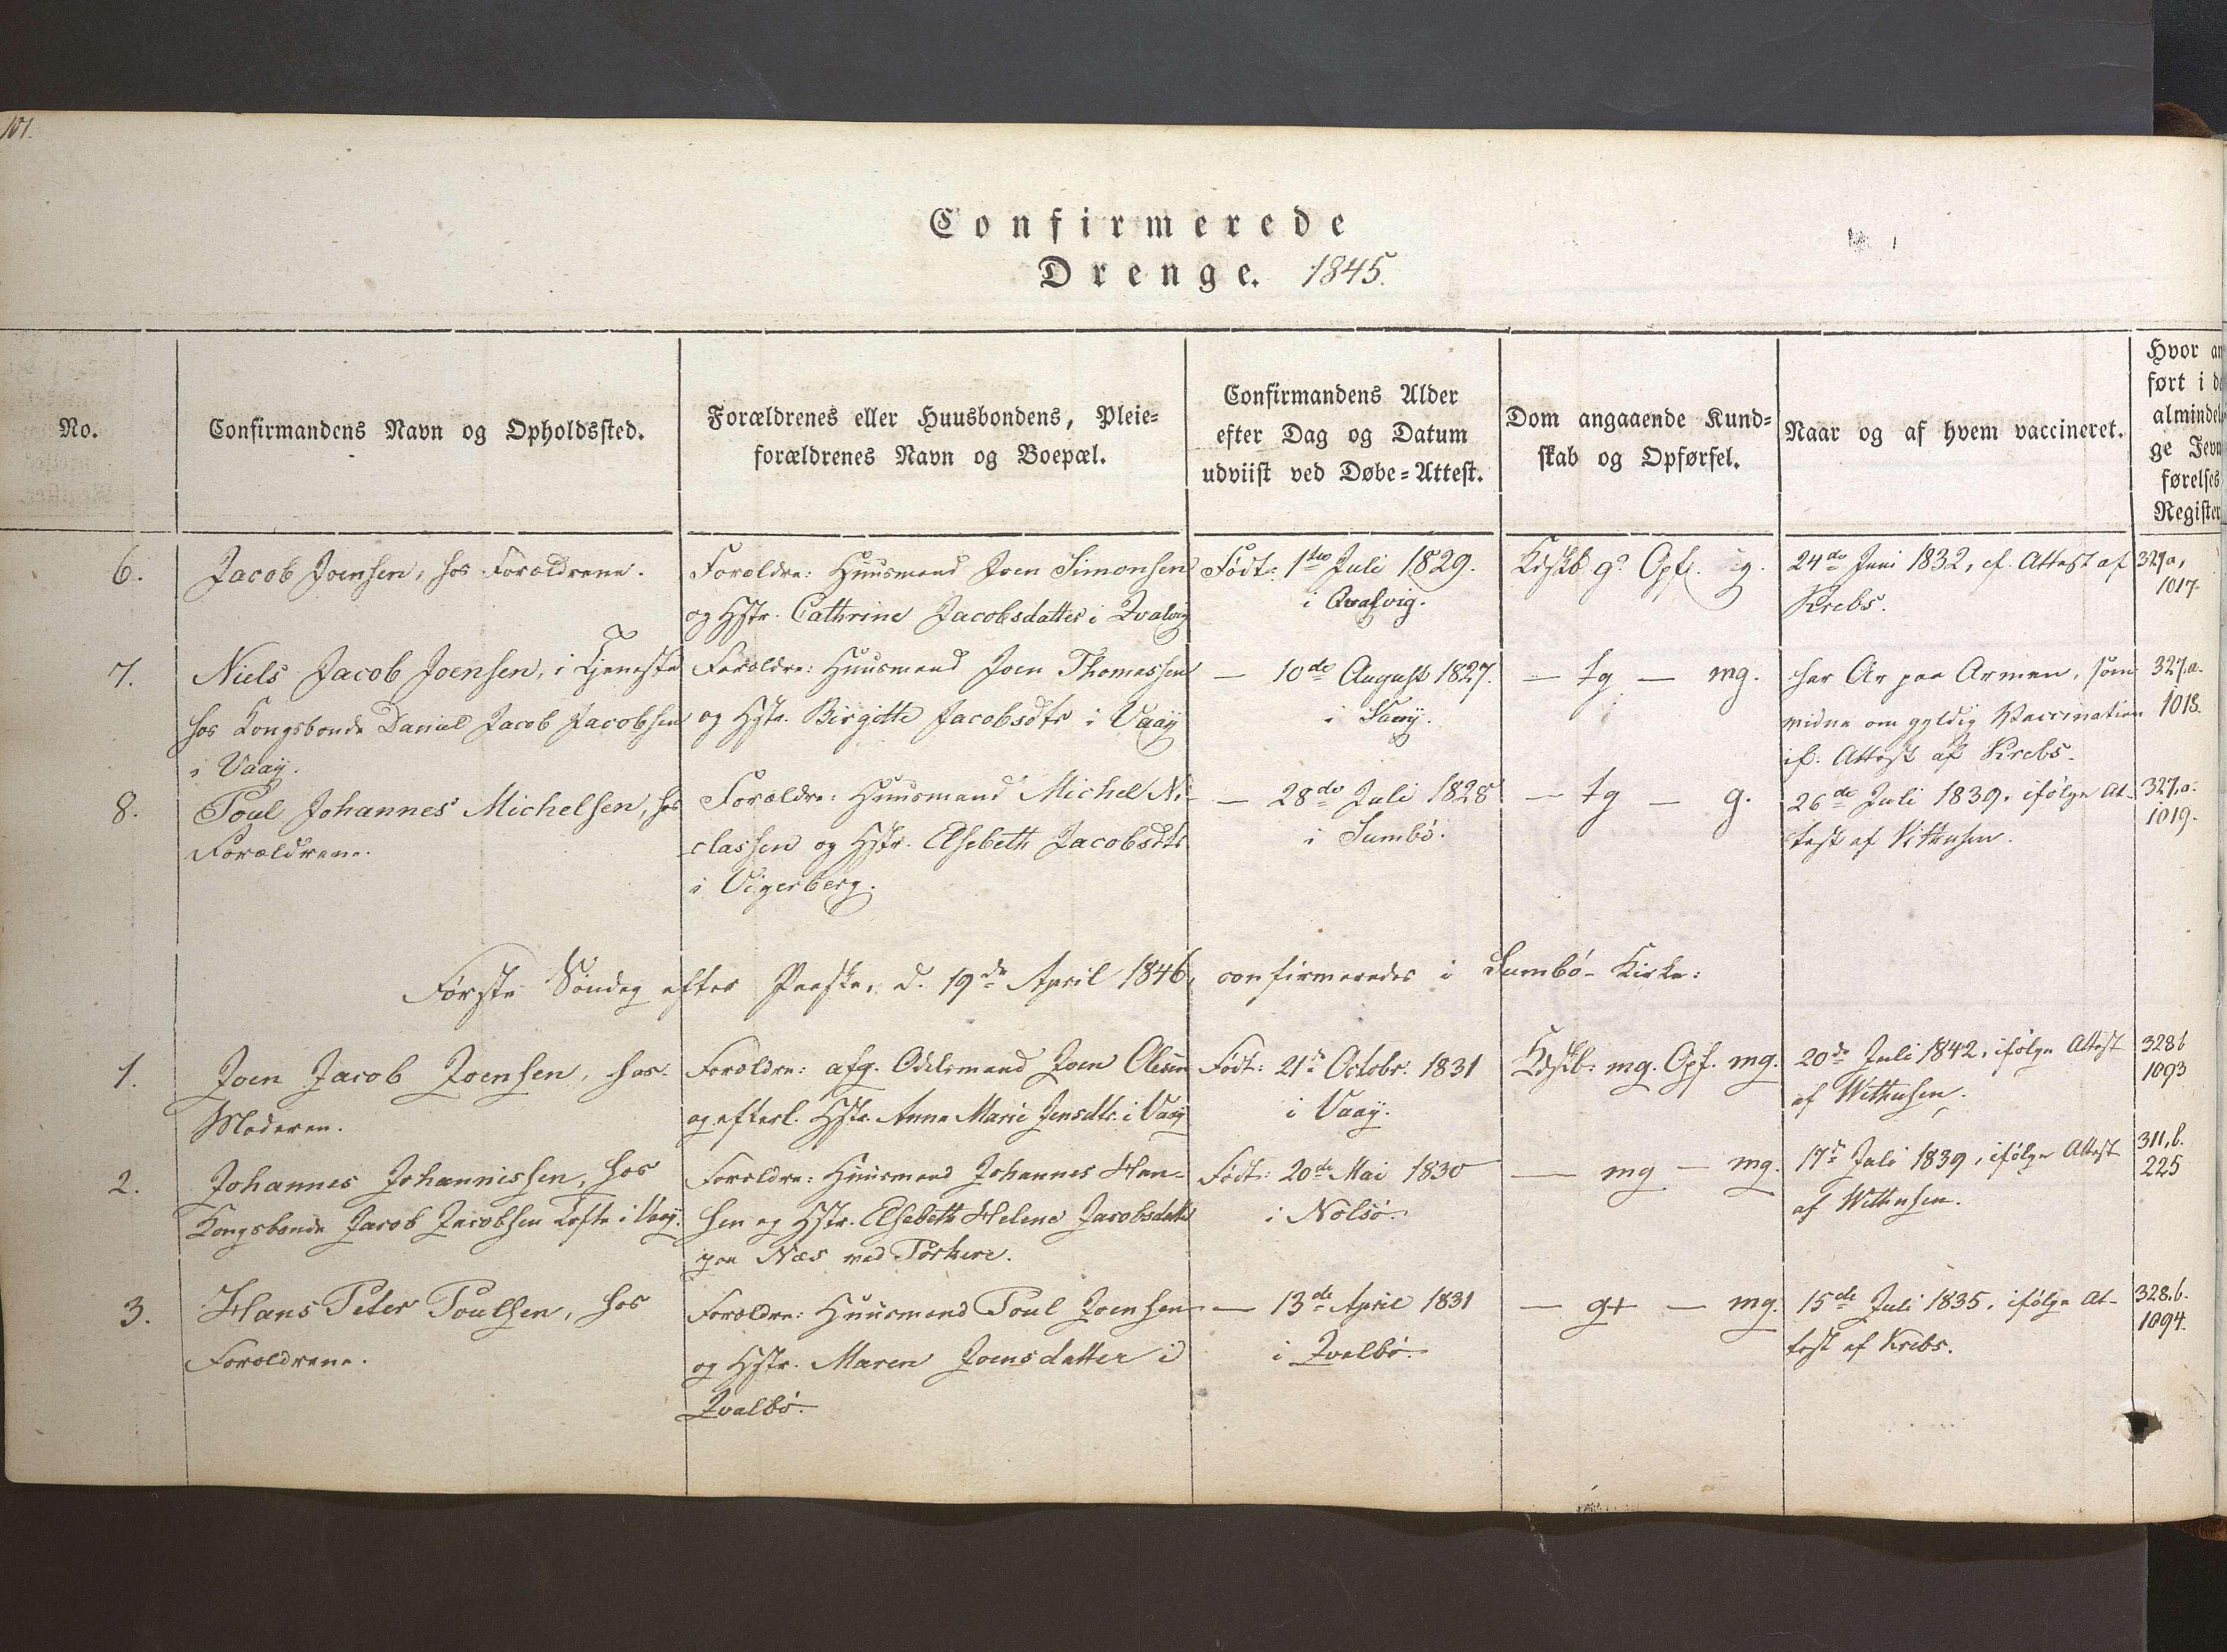 101.
Confirmerede
Drenge. 1845.
No.
Confirmandens Navn og Opholdssted.
Forældrenes eller Huusbondens, Pleie-
forældrenes Navn og Boepæl.
Confirmandens Alder
efter Dag og Datum
udviist ved Døbe-Attest.
Dom angaaende Kund-
skab og Opførsel.
Naar og af hvem vaccineret.
Hvor an
ført i de
almindel
ge Jevn
førelses
Register
6.
Jacob Joensen, hos Forældrene.
Forældre: Huusmand Joen Simonsen
og Hstr. Cathrine Jacobsdatter i Qvalvig
Født: 1ste Juli 1829.
i Qvalvig.
Kdskb g? Opf. g.
24de Juni 1832, if. Attest af
Krebs.
327a,
1017.
7.
Niels Jacob Joensen, i Tjeneste
hos Kongsbonde Daniel Jacob Jacobsen
i Vaaij.
Forældre: Huusmand Joen Thomassen
og Hstr. Birgitte Jacobsdtr i Vaaij
— 10de August 1827.
i Vaaij.
— tg — mg.
har Ar paa Armen, som
vidne om gyldig Vaccination
if. Attest af Krebs.
327.a.
1018.
8.
Poul Johannes Michelsen, hos
Forældrene.
Forældre: Huusmand Michel Ni-
classen og Hstr. Elsebeth Jacobsdtr
i Vigerberg.
— 28de Juli 1828
i Sumbø.
— tg — g.
26de Juli 1839, ifølge At-
test af Withusen.
327.a.
1019.
Første Søndag efter Paaske, d. 19de April 1846, confirmeredes i Sumbø-Kirke:
1.
Joen Jacob Joensen, hos
Moderen.
Forældre: afg. Odelsmand Joen Olesen
og efterl. Hstr. Anne Marie Jensdtr. i Vaaij
Født: 21de Octobr. 1831
i Vaaij.
Kdskb: mg. Opf. mg.
20de Juli 1842, ifølge Attest
af Withusen.
328b
1093
2.
Johannes Johannissen, hos
Kongsbonde Jacob Jacobsen Tofte i Vaaij.
Forældre: Huusmand Johannes Han-
sen og Hstr. Elsebeth Helene Jacobsdatter
paa Næs ved Porkere.
Født: 20de Mai 1830
i Nolsø.
— mg — mg.
17de Juli 1839, ifølge Attest
af Withusen.
311,b.
225
3.
Hans Peter Poulsen, hos
Forældrene.
Forældre: Huusmand Poul Joensen
og Hstr. Maren Joensdatter i
Qvalbø.
— 13de April 1831
i Qvalbø.
— g+ — mg.
15de Juli 1835, ifølge At-
test af Krebs.
328.b.
1094.